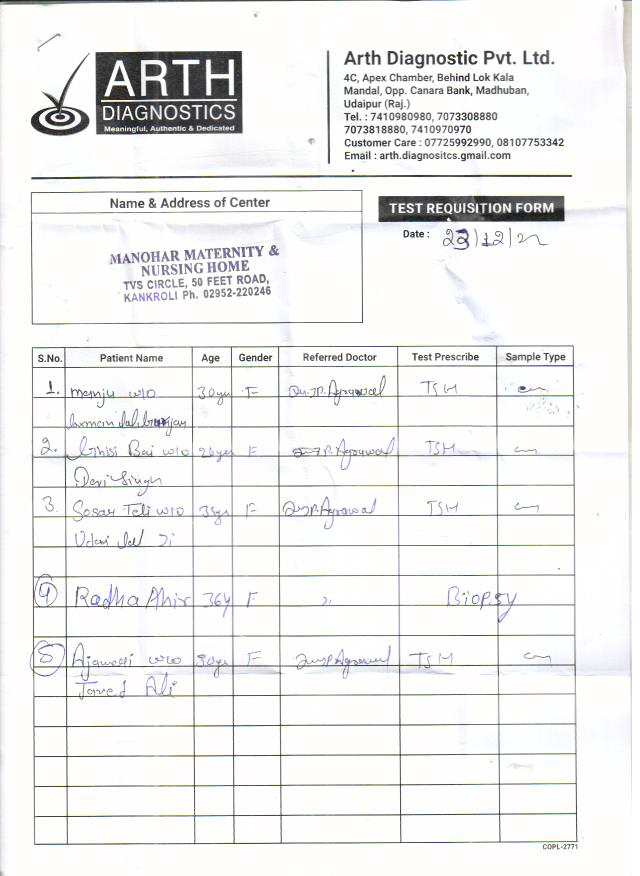 ARTH
DIAGNOSTICS
Meaningful, Authentic & Dedicated
Arth Diagnostic Pvt. Ltd.
4C, Apex Chamber, Behind Lok Kala
Mandal, Opp. Canara Bank, Madhuban,
Udaipur (Raj.)
Tel. : 7410980980, 7073308880
7073818880, 7410970970
Customer Care : 07725992990, 08107753342
Email : arth.diagnositcs.gmail.com
Name & Address of Center
MANOHAR MATERNITY &
NURSING HOME
TVS CIRCLE, 50 FEET ROAD,
KANKROLI Ph. 02952-220246
TEST REQUISITION FORM
Date :
S.No. Patient Name Age Gender Referred Doctor Test Prescribe Sample Type
1. Manju w/o 30yr F Dr. J.P. Agrawal TSH
2. Ghisi Bai w/o 26yr F J.P. Agrawal TSH
Devi Singh
3. Sosar Teli w/o 35yr F Dr. J.P. Agrawal TSH
Udai Lal Ji
4 Radha Ahir 36y F " Biopsy
5 w/o 30yr F Dr. J.P. Agrawal TSH
Javed Ali
COPL-2771